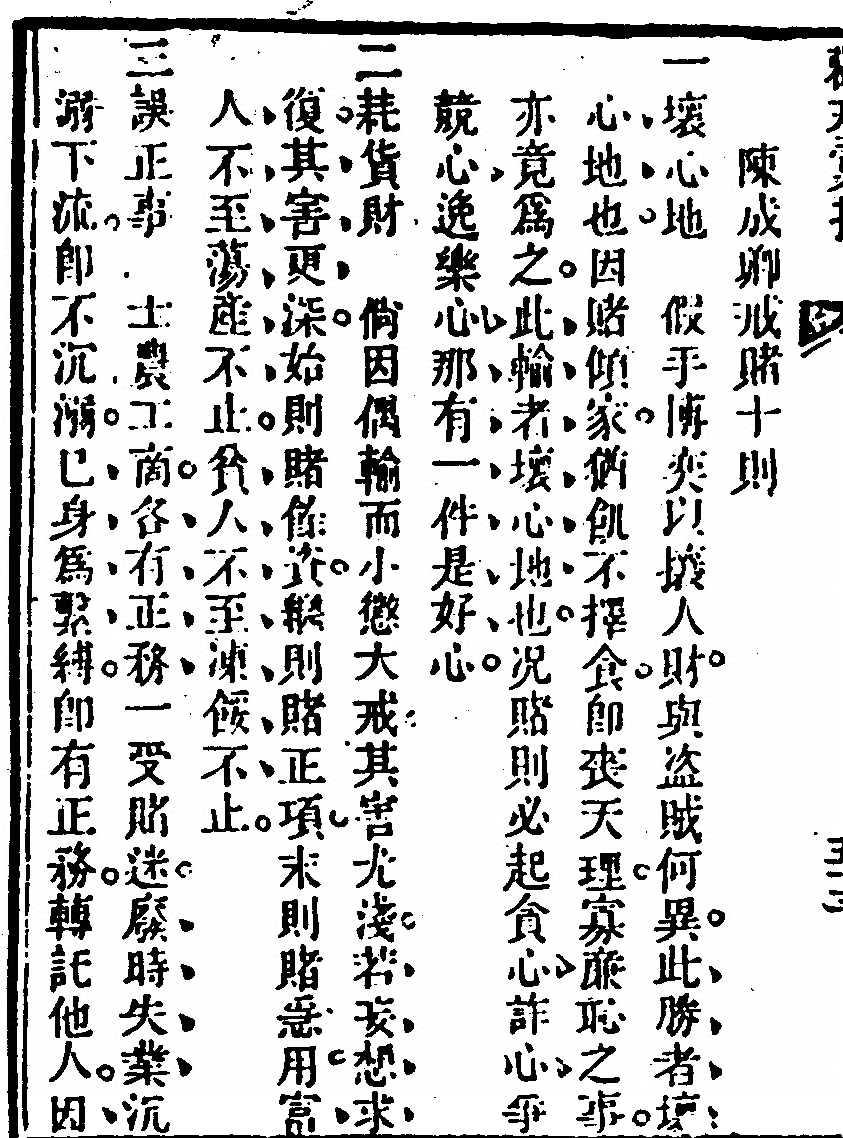 陳成卿戒賭十則
一壞心地　假手博奕以攘人財與盜賊何異此勝者壞
心地也因賭傾家猶飢不擇食卽喪天理寡廉恥之事
亦竟爲之此輸者壞心地也况賭則必起貪心詐心爭
競心逸樂心那有一件是好心
二耗貨財　倘因偶輸而小懲大戒其害尤淺若妄想求
復其害更深始則賭餘資繼則賭正項末則賭急用富
人不至蕩產不止貧人不至凍餒不止
三誤正事　士農工商各有正務一受賭迷廢時失業沉
溺下流卽不沉溺已身爲繫縛卽有正務轉託他人因